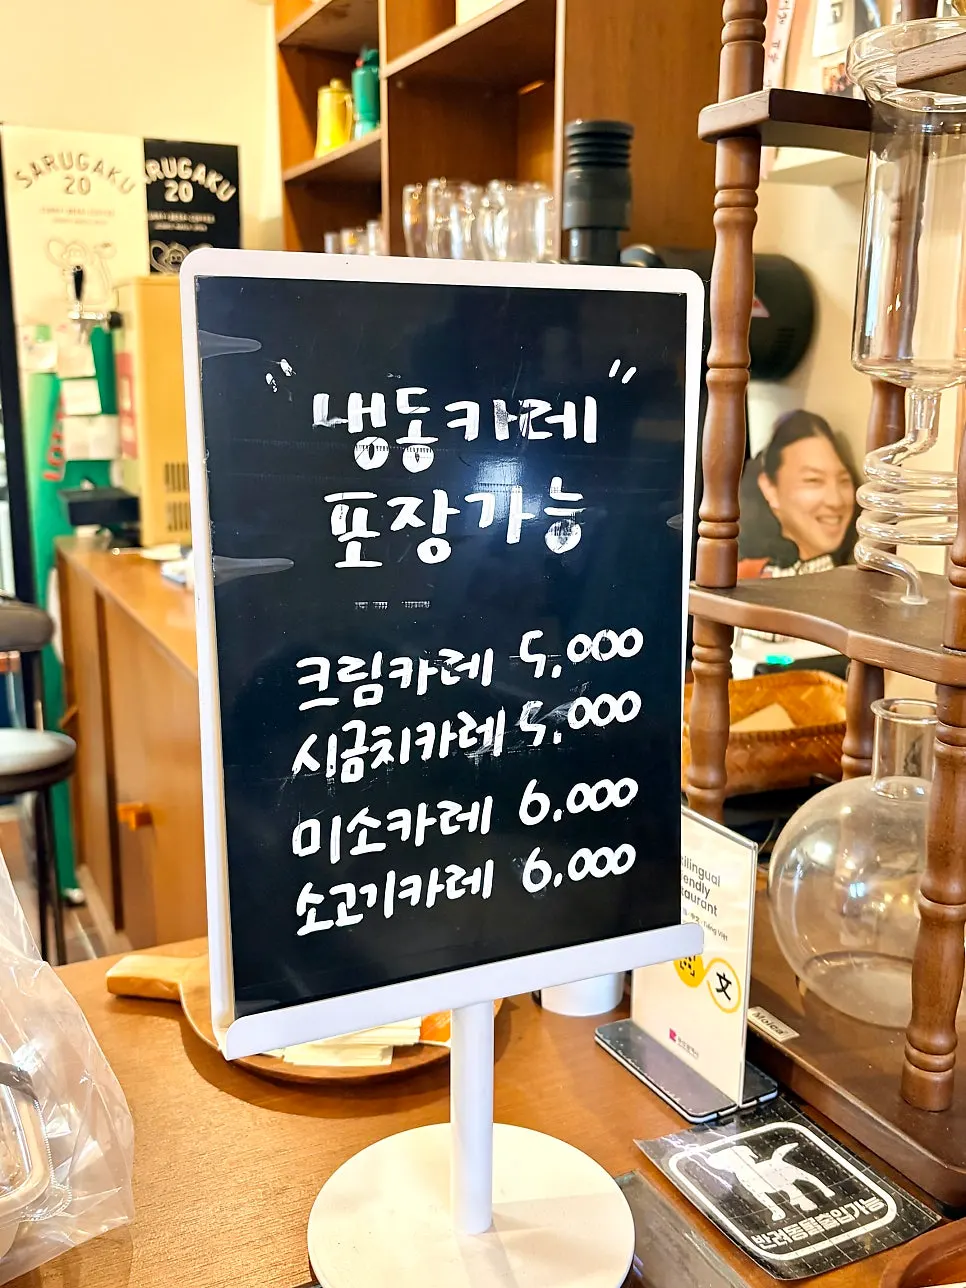 SARUGAKU
20
RUGAKU
20
"냉동카레"
포장가능
크림카레 5,000
시금치카레 5,000
미소카레 6.000
소고기카레 6.000
ilingual
endly
taurant
文
Moica
반려동물출입가능